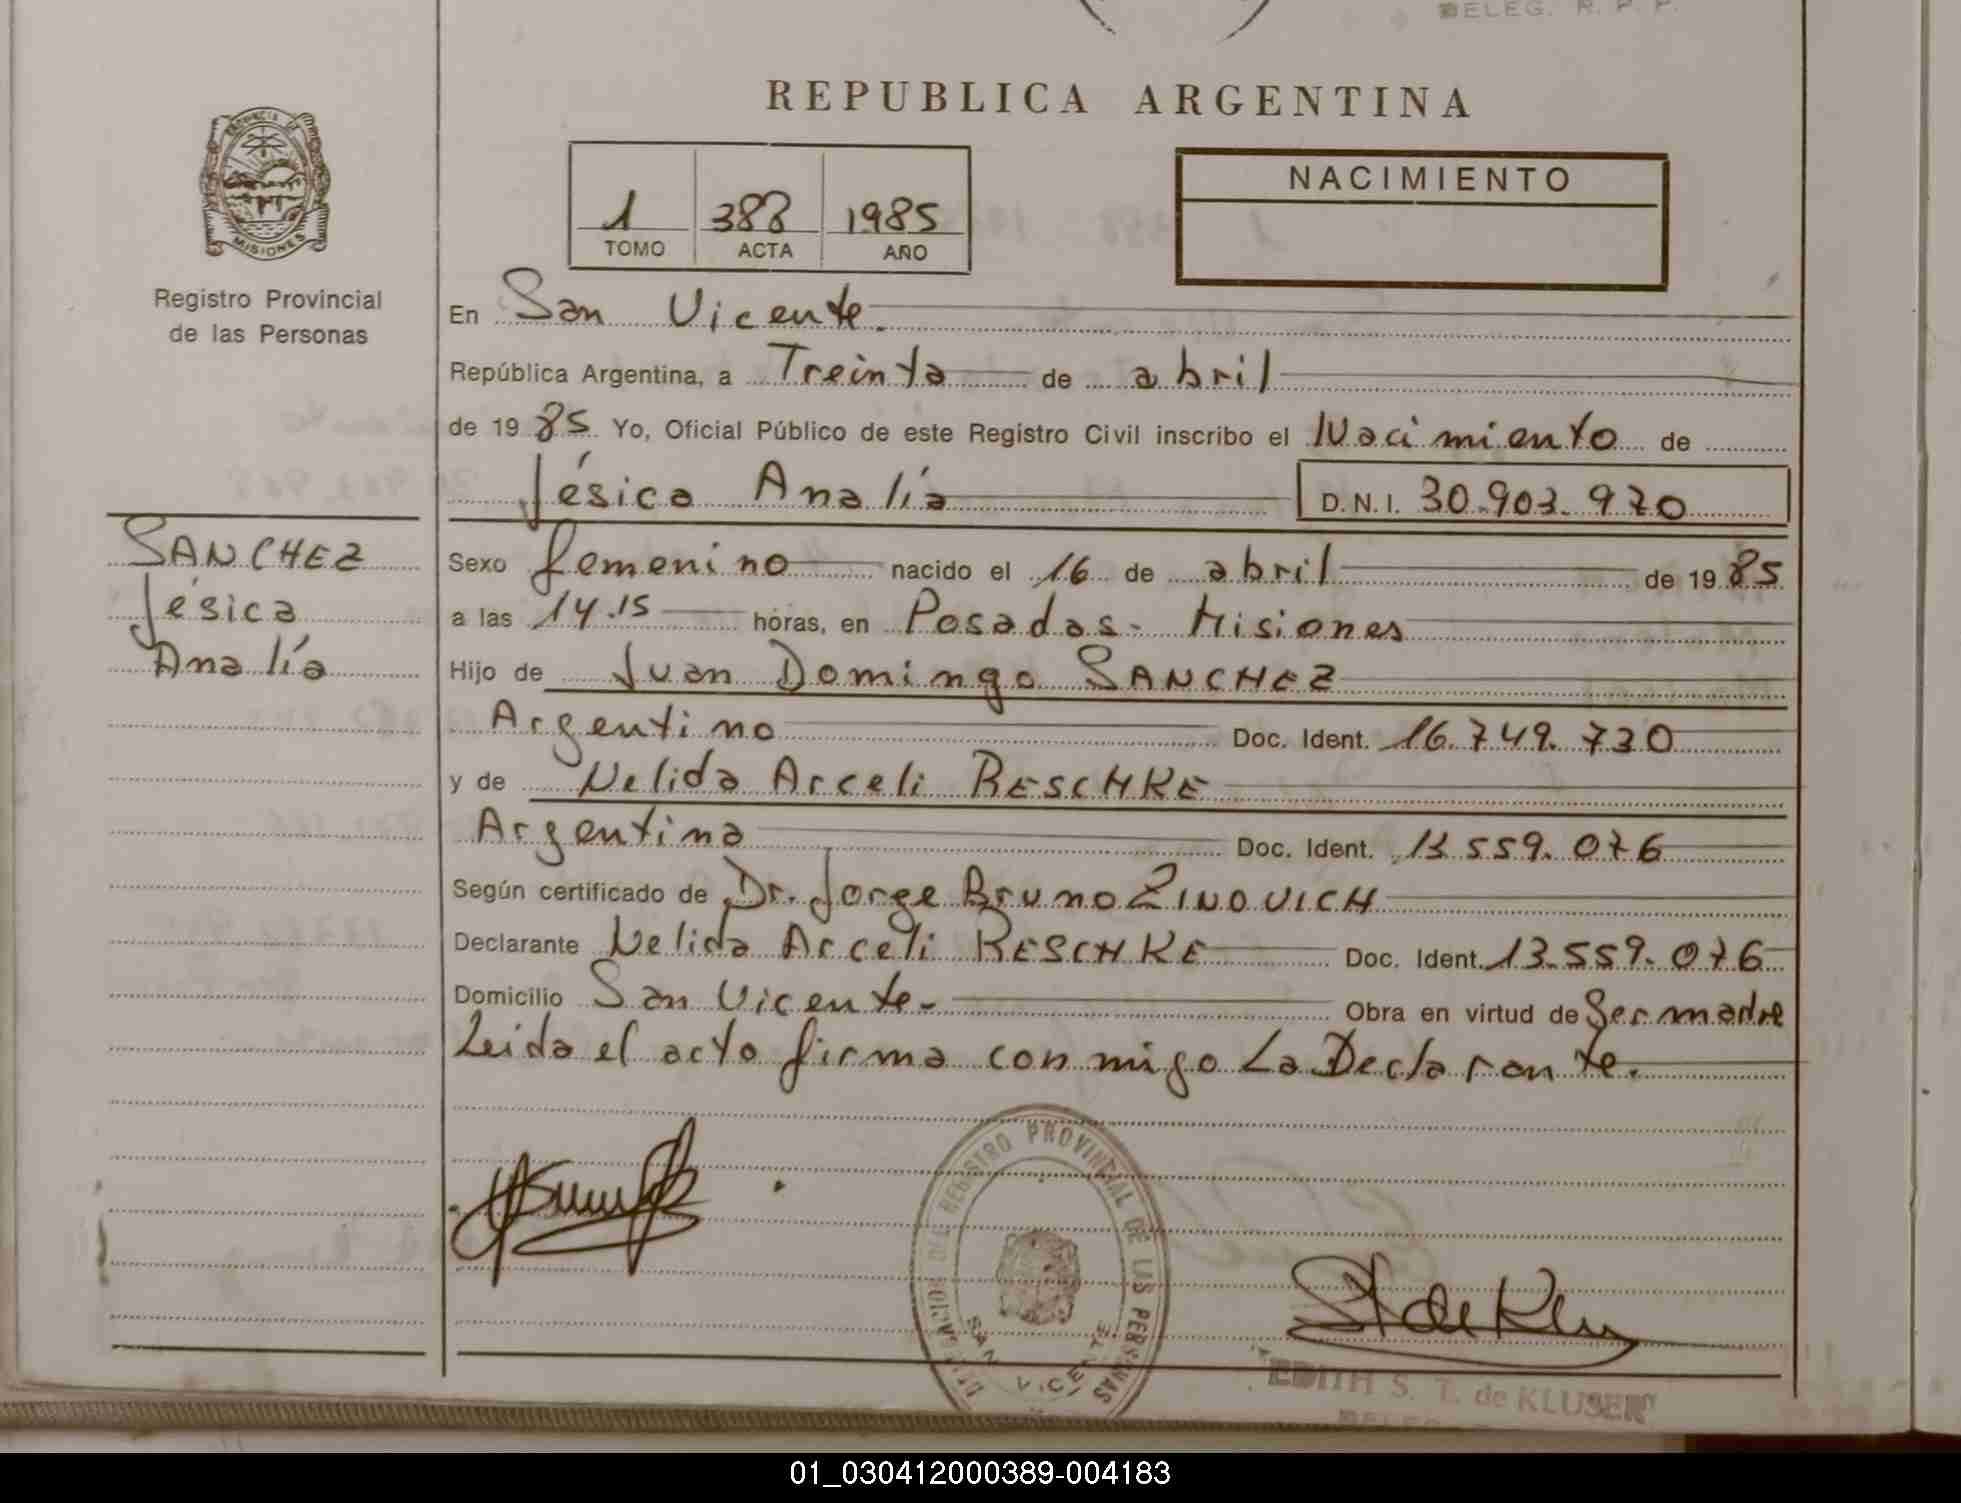 DELEG. R. P. P.
REPUBLICA ARGENTINA
PROVINCIA DE
MISIONES
Registro Provincial
de las Personas
1 388 1985
TOMO ACTA AÑO
NACIMIENTO
En San Vicente.
República Argentina, a Treinta de abril
de 1985 Yo, Oficial Público de este Registro Civil inscribo el Nacimiento de
Jésica Analía D.N.I. 30.903.970
SANCHEZ
Jésica
Analía
Sexo femenino nacido el 16 de abril de 1985
a las 14.15 horas, en Posadas - Misiones
Hijo de Juan Domingo SANCHEZ
Argentino Doc. Ident. 16.749.730
y de Nelida Arceli RESCHKE
Argentina Doc. Ident. 13.559.076
Según certificado de Dr. Jorge Bruno ZINOVICH
Declarante Nelida Arceli RESCHKE Doc. Ident. 13.559.076
Domicilio San Vicente - Obra en virtud de Ser madre
Leida el acto firma con migo La Declarante.
DELEGACION DEL REGISTRO PROVINCIAL DE LAS PERSONAS
SAN VICENTE
EDITH S. T. de KLUSER
01_030412000389-004183